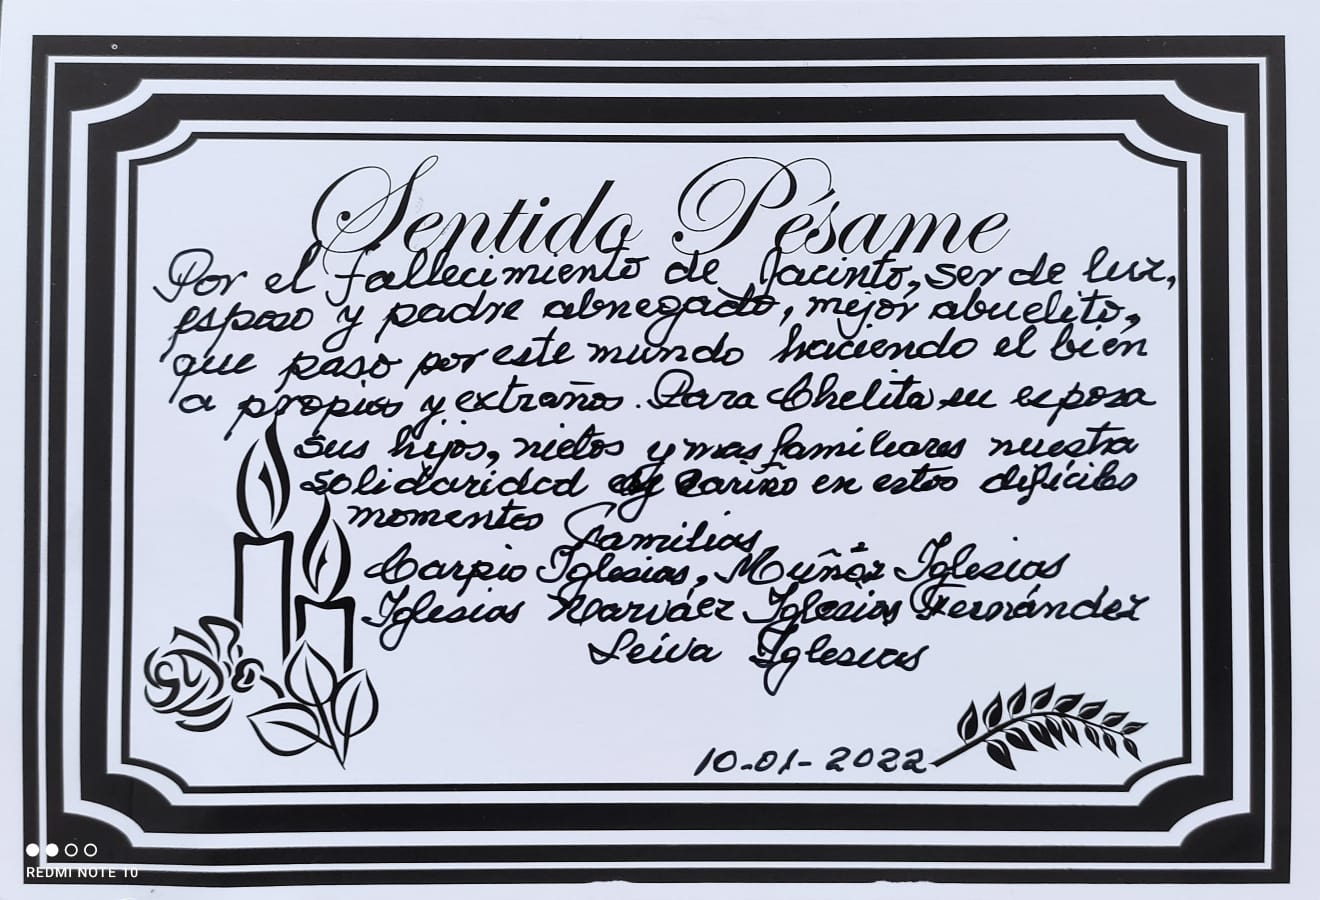 Sentido Pésame
Por el fallecimiento de Jacinto, ser de luz,
esposo y padre abnegado, mejor abuelito,
que paso por este mundo haciendo el bien
a propios y extraños. Para Chelita su esposa
sus hijos, nietos y mas familiares nuestra
solidaridad y cariño en estos difíciles
momentos Familias
Carpio Iglesias, Muñoz Iglesias
Iglesias Narváez Iglesias Fernández
Leiva Iglesias
10-01-2022
REDMI NOTE 10